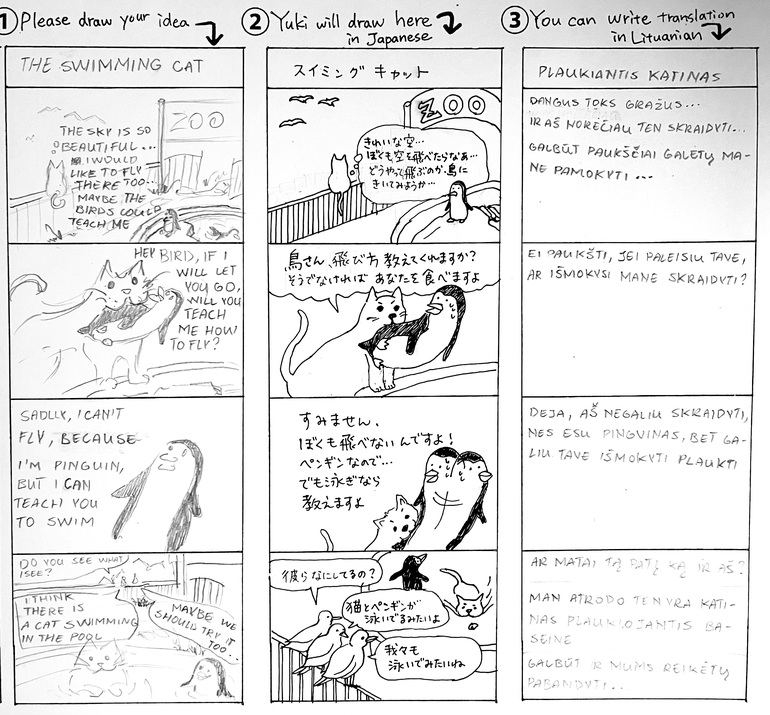 ① Please draw your idea
THE SWIMMING CAT
ZOO
THE SKY IS SO
BEAUTIFUL...
I WOULD
LIKE TO FLY
THERE TOO...
MAYBE THE
BIRDS COULD
TEACH ME
HEY BIRD, IF I
WILL LET
YOU GO,
WILL YOU
TEACH
ME HOW
TO FLY?
SADLLY, I CAN'T
FLY, BECAUSE
I'M PINGUIN,
BUT I CAN
TEACH YOU
TO SWIM
DO YOU SEE WHAT
I SEE?
I THINK
THERE IS
A CAT SWIMMING
IN THE POOL
MAYBE WE
SHOULD TRY IT
TOO...
② Yuki will draw here
in Japanese
スイミング キャット
ZOO
きれいな空…
ぼくも空を飛べたらなあ…
どうやって飛ぶのか、鳥に
きいてみようか…
鳥さん、飛び方 教えてくれますか?
そうでなければ あなたを食べますよ
すみません、
ぼくも飛べないんですよ!
ペンギンなので…
でも泳ぎなら
教えますよ
彼らなにしてるの?
猫とペンギンが
泳いでるみたいよ
我々も
泳いでみたいね
③ You can write translation
in Lituanian
PLAUKIANTIS KATINAS
DANGUS TOKS GRAŽUS...
IR AŠ NORĖČIAU TEN SKRAIDYTI...
GALBŪT PAUKŠČIAI GALĖTŲ MA-
NE PAMOKYTI ...
EI PAUKŠTI, JEI PALEISIU TAVE,
AR IŠMOKYSI MANE SKRAIDYTI?
DEJA, AŠ NEGALIU SKRAIDYTI,
NES ESU PINGVINAS, BET GA-
LIU TAVE IŠMOKYTI PLAUKTI
AR MATAI TĄ PATĮ KĄ IR AŠ?
MAN ATRODO TEN YRA KATI-
NAS PLAUKIOJANTIS BA-
SEINE
GALBŪT IR MUMS REIKĖTŲ
PABANDYTI...